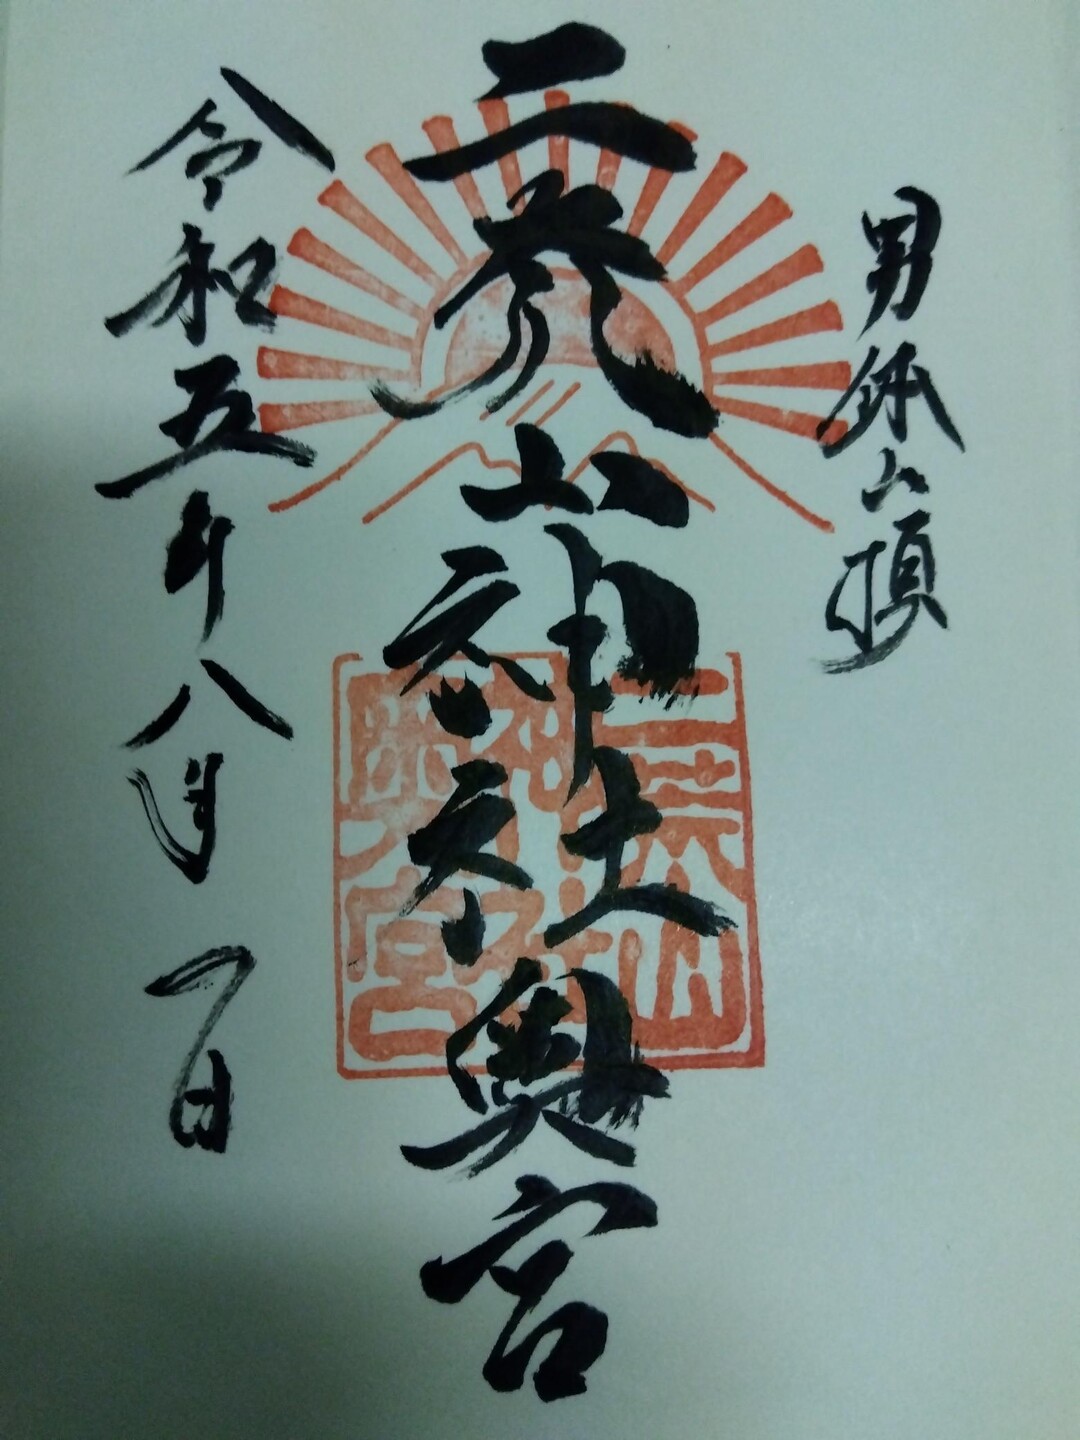 男鉢山頂
二荒山神社奥宮
二荒山神社奥宮
令和五年八月 日